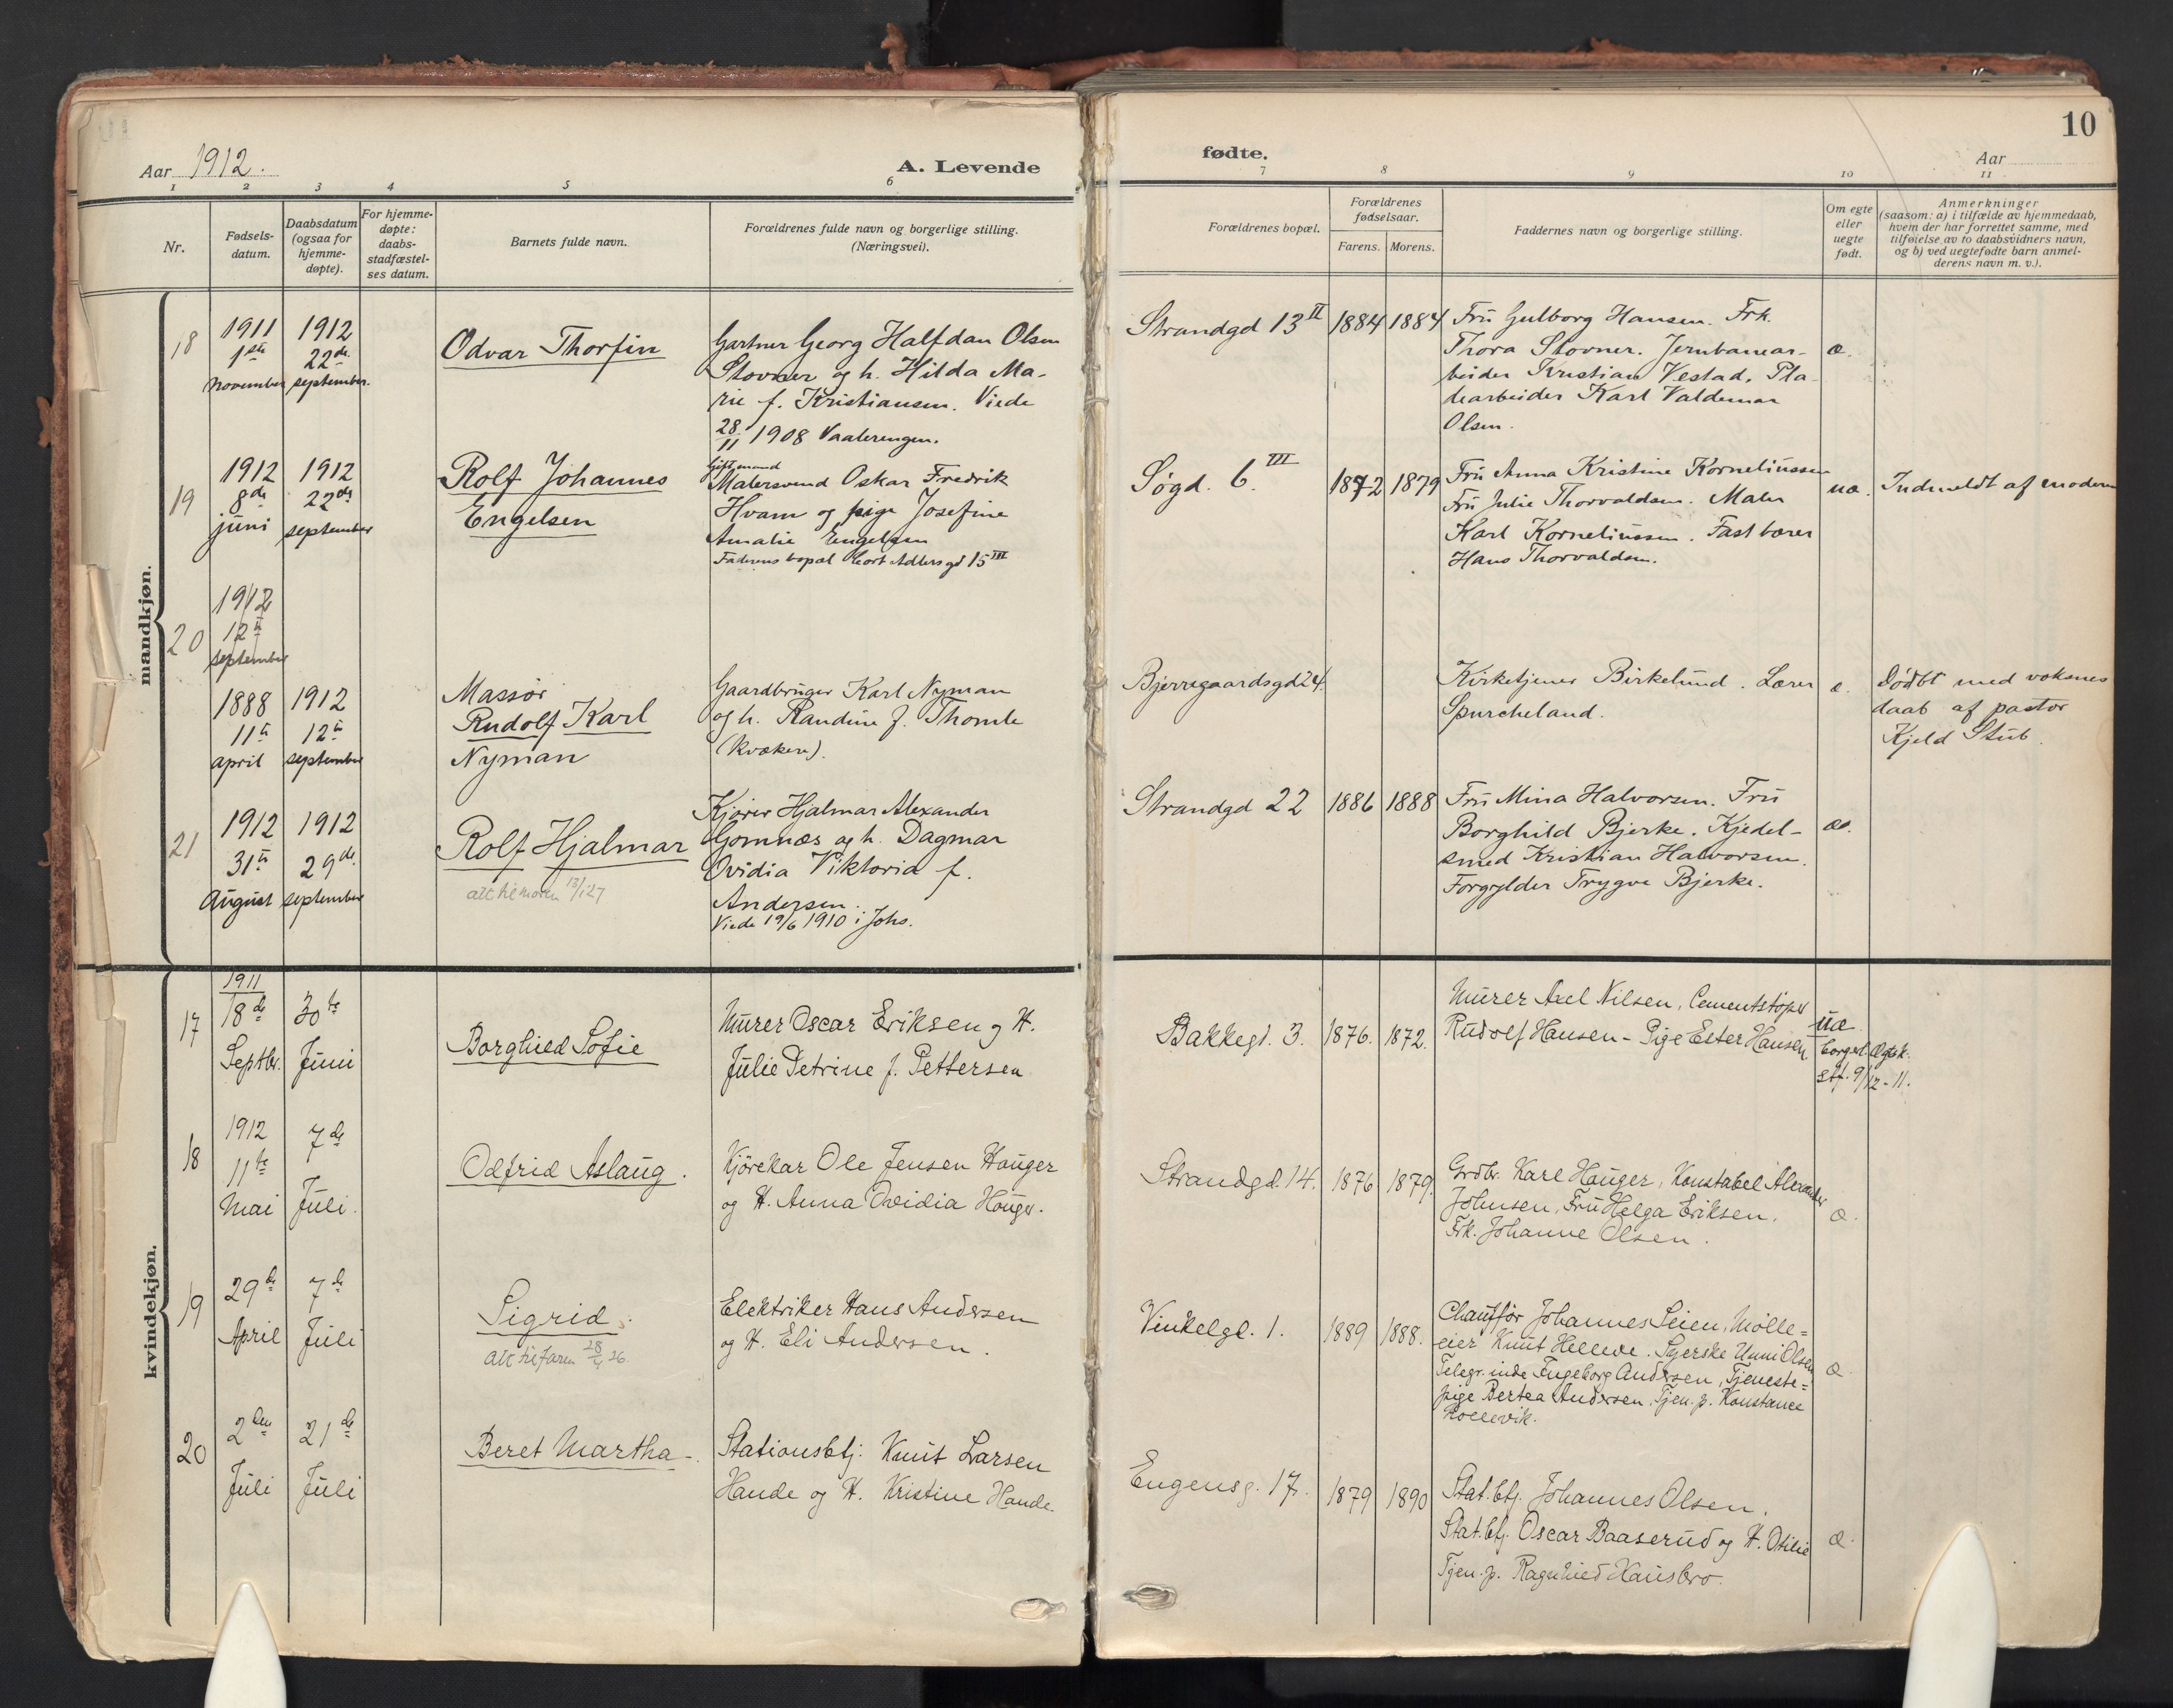 10
Aar 1912.
A. Levende
fødte.
Aar
1 2 3 4 5 6 7 8 9 10 11
Nr.
Fødsels-
datum.
Daabsdatum
(ogsaa for
hjemme-
døpte).
For hjemme-
døpte:
daabs-
stadfæstel-
ses datum.
Barnets fulde navn.
Forældrenes fulde navn og borgerlige stilling.
(Næringsvei).
Forældrenes bopæl.
Forældrenes
fødselsaar.
Farens. Morens.
Faddernes navn og borgerlige stilling.
Om egte
eller
uegte
født.
Anmerkninger
(saasom: a) i tilfælde av hjemmedaab,
hvem der har forrettet samme, med
tilføielse av to daabsvidners navn,
og b) ved uegtefødte barn anmel-
derens navn m. v.).
mandkjøn.
18
1911
1ste
november
1912
22de
september.
Odvar Thorfin
Gartner Georg Halfdan Olsen
Stovner og h. Hilda Ma-
rie f. Kristiansen. Viede
28/11 1908 Vaalerengen.
Strandgd 13 II
1884
1884
Fru Gulborg Hansen. Frk.
Thora Stovner. Jernbanear-
beider Kristian Vestad. Pla-
tearbeider Karl Valdemar
Olsen.
æ.
19
1912
8de
juni
1912
22de
september
Rolf Johannes
Engelsen
Gift mand
Malersvend Oskar Fredrik
Hvam og pige Josefine
Amalie Engelsen
Faderens bopæl Cort Adlersgd 15 III
Søgd. 6. III
1872
1879
Fru Anna Kristine Korneliussen
Fru Julie Thorvaldsen. Maler
Karl Korneliussen. Fast bærer
Hans Thorvaldsen.
uæ.
Indmeldt af moderen
20
1912
12te
september
1888
11te
april
1912
12te
september
Massør
Rudolf Karl
Nyman
Gaardbruger Karl Nyman
og h. Randine f. Thomle
(Kvækere).
Bjerregaardsgd 24.
Kirketjener Birkelund. Lærer
Spurcheland.
æ.
Dødbt med voksnes
daab af pastor
Kjeld Stub.
21
1912
31te
August
1912
29de.
september
Rolf Hjalmar
att til moren 13/1 27
Kjører Hjalmar Alexander
Gomnæs og h. Dagmar
Ovidia Viktoria f.
Andersen.
Viede 19/6 1910 i Johs.
Strandgd 22
1886
1888
Fru Mina Halvorsen. Fru
Borghild Bjerke. Kjedel-
smed Kristian Halvorsen.
Forgylder Trygve Bjerke.
æ.
kvindekjøn.
17
1911
18de
Septbr.
30te
Juni
Borghild Sofie
Murer Oscar Eriksen og H.
Julie Petrine f. Pettersen
Bakkegt. 3.
1876.
1872.
Murer Axel Nilsen, Cementstøper
Rudolf Hansen - Pige Ester Hansen
uæ.
borgerl. Ægtsk.
stf. 9/12 - 11.
18
1912
11te
Mai
7de
Juli.
Odfrid Aslaug.
Kjørekar Ole Jensen Hauger
og H. Anna Ovidia Hauger.
Strandgd. 14.
1876
1879.
Grdbr. Karl Hauger, Konstabel Alexander
Johnsen, Fru Helga Eriksen,
Frk. Johanne Olsen.
æ.
19
29de
April
7de
Juli
Sigrid.
att til faren 28/4 26.
Elektriker Hans Andersen
og H. Eli Andersen.
Vinkelgt. 1.
1889
1888.
Chauffør Johannes Leien, Mølle=
eier Knut Helleve. Syerske Unni Olsen
Telegr.inde Ingeborg Andersen, Tjeneste=
pige Bertea Andersen. Tjen. p. Konstance
Hollevik.
æ.
20
2den
Juli
21de
Juli
Beret Martha
Stationsbtj. Knut Larsen
Hande og H. Kristine Hande
Engensg. 17.
1879
1890
Stat. btj. Johannes Olsen.
Stat. btj. Oscar Baaserud og H. Otilie
Tjen. p. Ragnhild Hausbro.
æ.